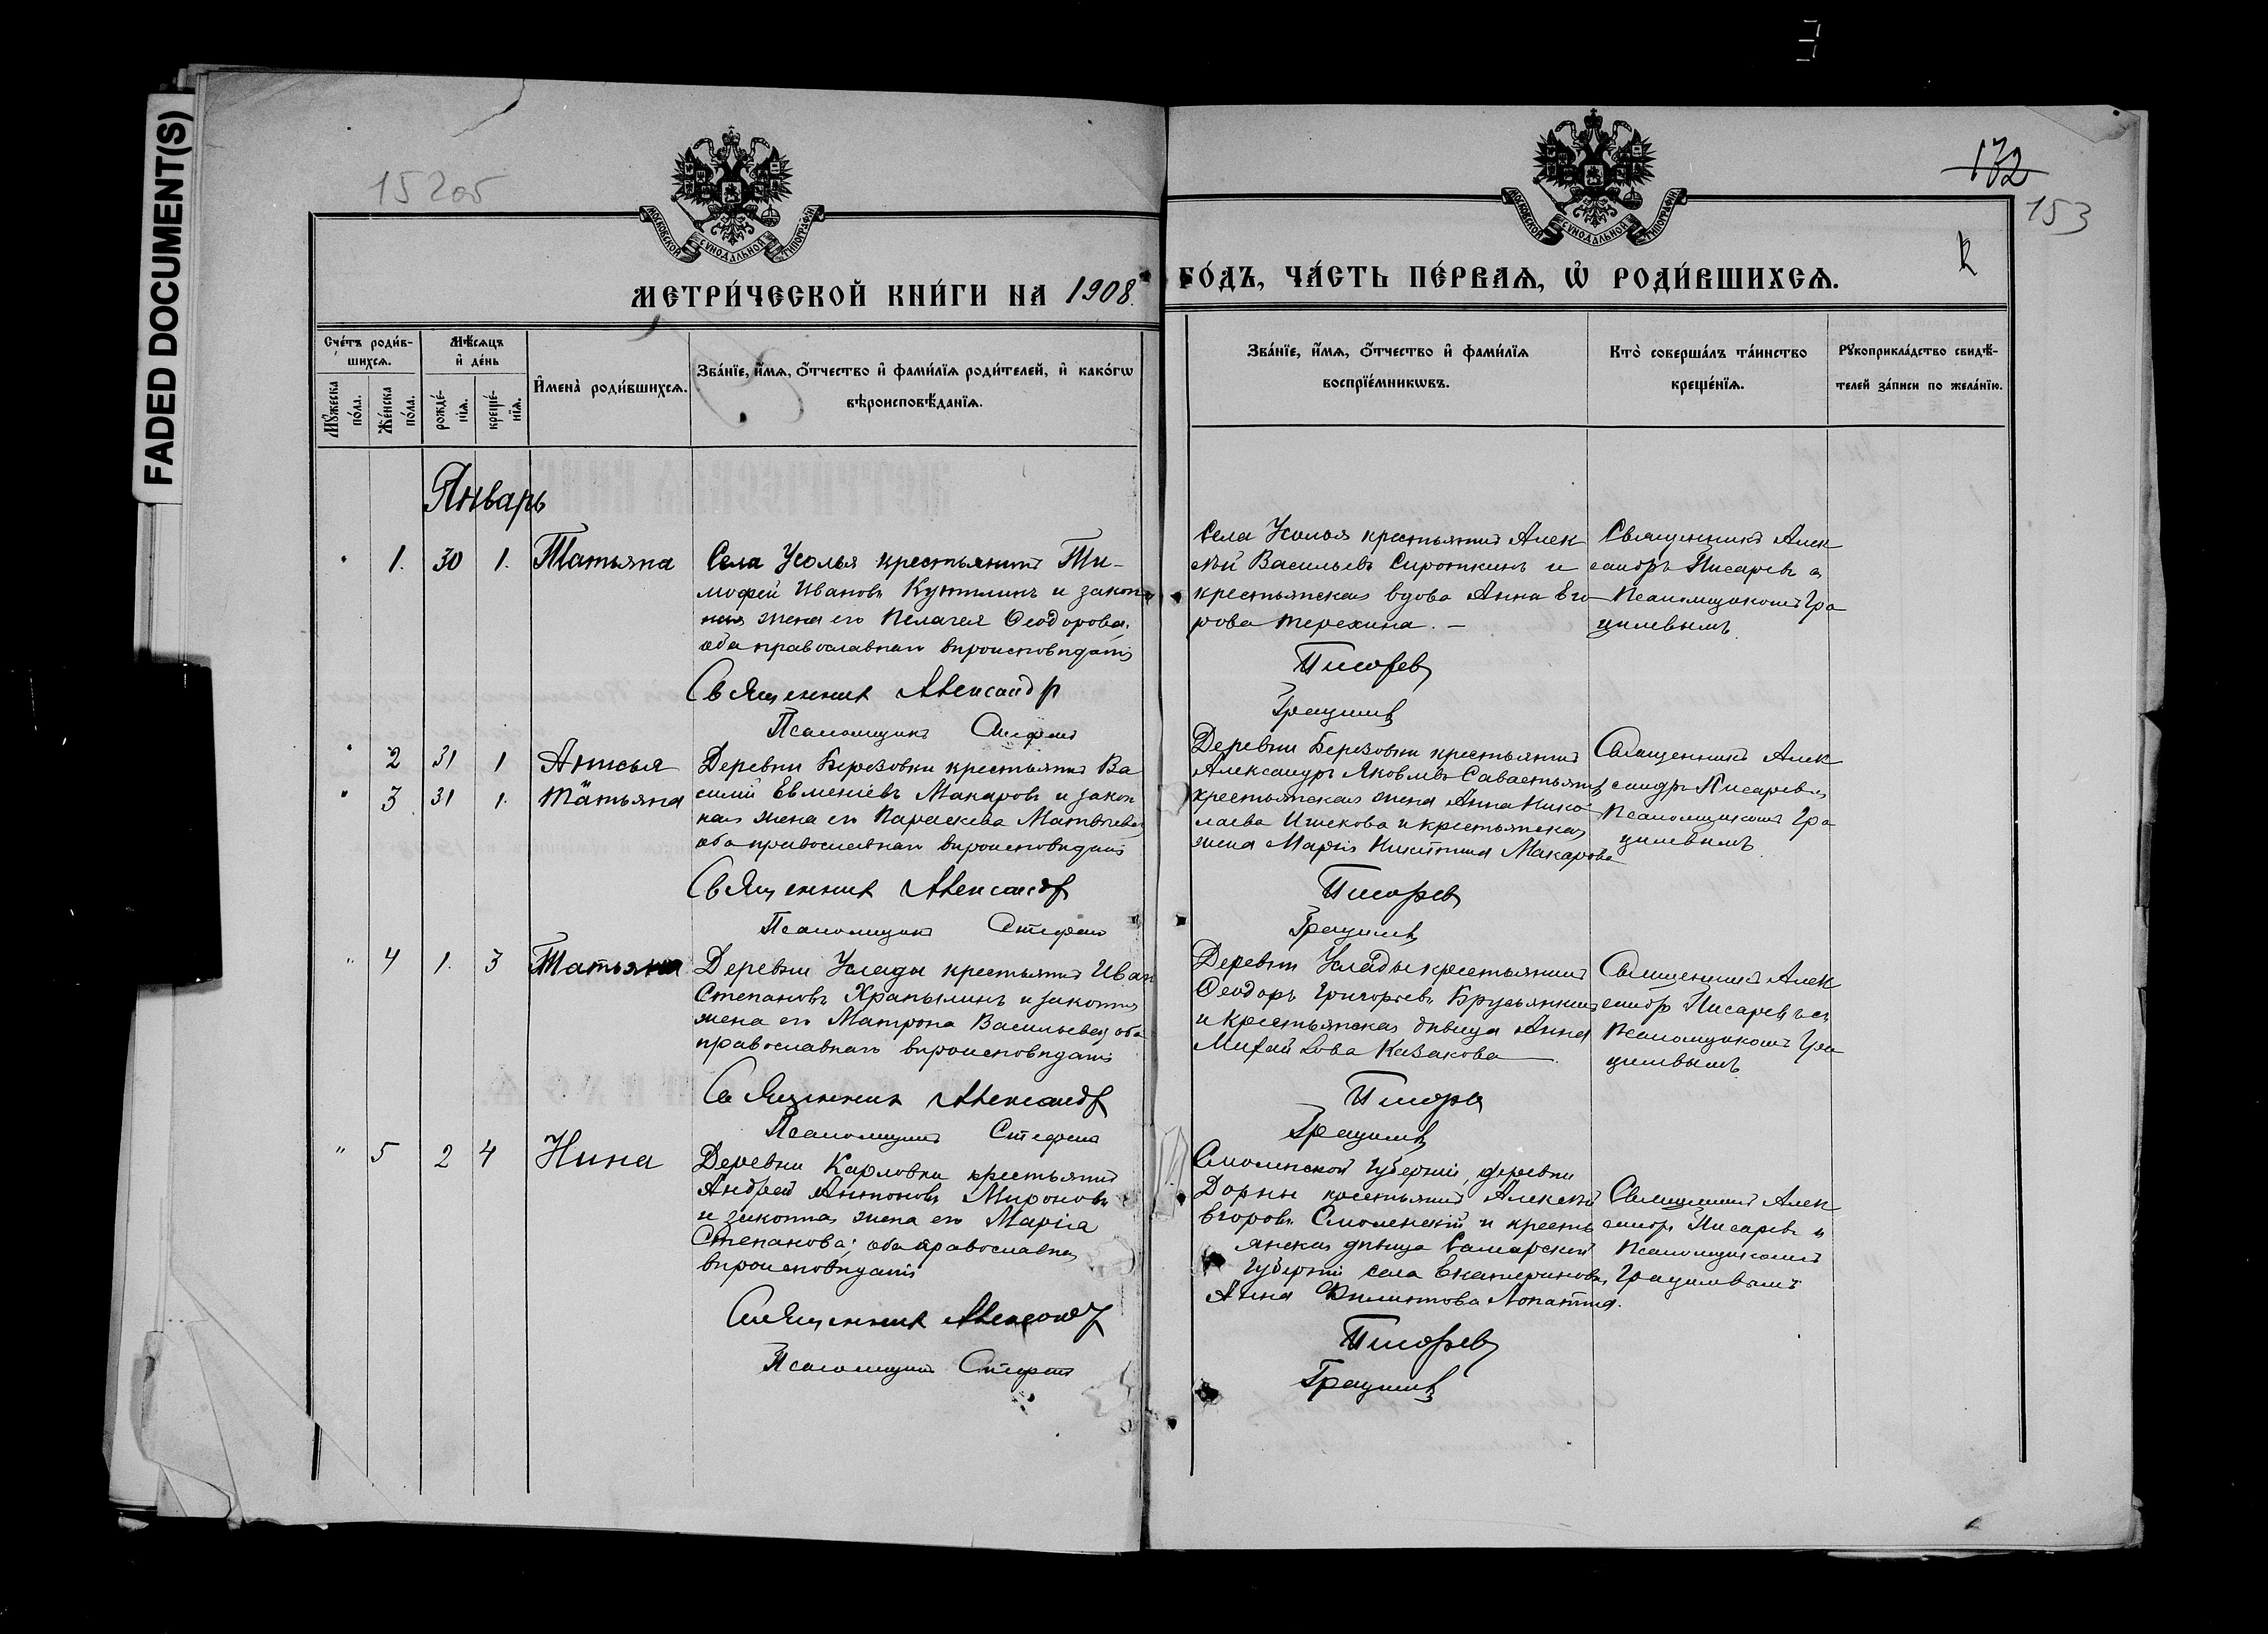 FADED DOCUMENT(S)
15205
132
153
МОСКОВСКОЙ СУНОДАЛЬНОЙ ТИПОГРАФІИ
МОСКОВСКОЙ СУНОДАЛЬНОЙ ТИПОГРАФІИ
МЕТРИ́ЧЕСКОЙ КНИ́ГИ НА 1908.
ГО́ДЪ, ЧА́СТЬ ПЕ́РВАѦ, Ѡ҆ РОДИ́ВШИХСѦ.
Сче́тъ роди́в-
шихсѧ.
Мꙋ́жеска
по́ла.
Же́нска
по́ла.
Мѣ́сѧцъ
и҆ де́нь
рожде́-
нїѧ.
креще́-
нїѧ.
И҆мена̀ роди́вшихсѧ.
Зва́нїе, и҆́мѧ, ѻ҆́тчество и҆ фами́лїѧ роди́телей, и҆ како́гѡ
вѣроисповѣ́данїѧ.
Зва́нїе, и҆́мѧ, ѻ҆́тчество и҆ фами́лїѧ
воспрїе́мникѡвъ.
Кто̀ соверша́лъ та́инство
креще́нїѧ.
Рꙋкоприкла́дство свидѣ́-
телей за́писи по жела́нїю.
Январь
1. 30 1. Татьяна
Села Усолья крестьянинъ Ти-
мофей Ивановъ Кутилинъ и закон
ная жена его Пелагея Ѳеодорова,
оба православнаго вѣроисповѣданія
Священник Александр
Псаломщикъ Стефанъ
Села Усолья крестьянинъ Алек
сѣй Васильевъ Сироткинъ и
крестьянская вдова Анна Его
рова Терехина. —
Писарев
Грацилев
Священникъ Алек
сандръ Писаревъ съ
Псаломщикомъ Гра
цилевымъ.
2 31 1 Анисья
3 31 1. Татьяна
Деревни Березовки крестьянинъ Ва
силій Евменіевъ Макаровъ и закон
ная жена его Параскева Матвѣева,
оба православнаго вѣроисповѣданія
Священник Александр
Псаломщикъ Стефанъ
Деревни Березовки крестьянинъ
Александръ Яковлевъ Савастьянов
крестьянская жена Анна Нико
лаева и крестьянская
жена Марія Никитина Макарова
Писарев
Грацилев
Священникъ Алек
сандръ Писаревъ съ
Псаломщикомъ Гра
цилевымъ
4 1. 3 Татьяна
Деревни Услады крестьянинъ Иван
Степановъ Храпылинъ и законная
жена его Матрона Васильева, оба
православнаго вѣроисповѣданія
Священник Александр
Псаломщикъ Стефанъ
Деревни Услады крестьянинъ
Ѳеодоръ Григорьевъ Брусьянкин
и крестьянская дѣвица Анна
Михайлова Казакова
Писарев
Грацилев
Священникъ Алек
сандръ Писаревъ съ
Псаломщикомъ Гра
цилевымъ.
5 2 4 Нина
Деревни Карловки крестьянинъ
Андрей Антоновъ Мироновъ
и законная жена его Марія
Степанова; оба православнаго
вѣроисповѣданія
Священник Александр
Псаломщикъ Стефанъ
Смоленской губерніи, деревни
крестьянинъ Алексѣй
Егоровъ Смоленскій и кресть
янская дѣвица Самарской
губерніи села Екатериновки
Анна Филиппова Лопатина.
Писарев
Грацилев
Священникъ Алек
сандръ Писаревъ съ
Псаломщикомъ
Грацилевымъ